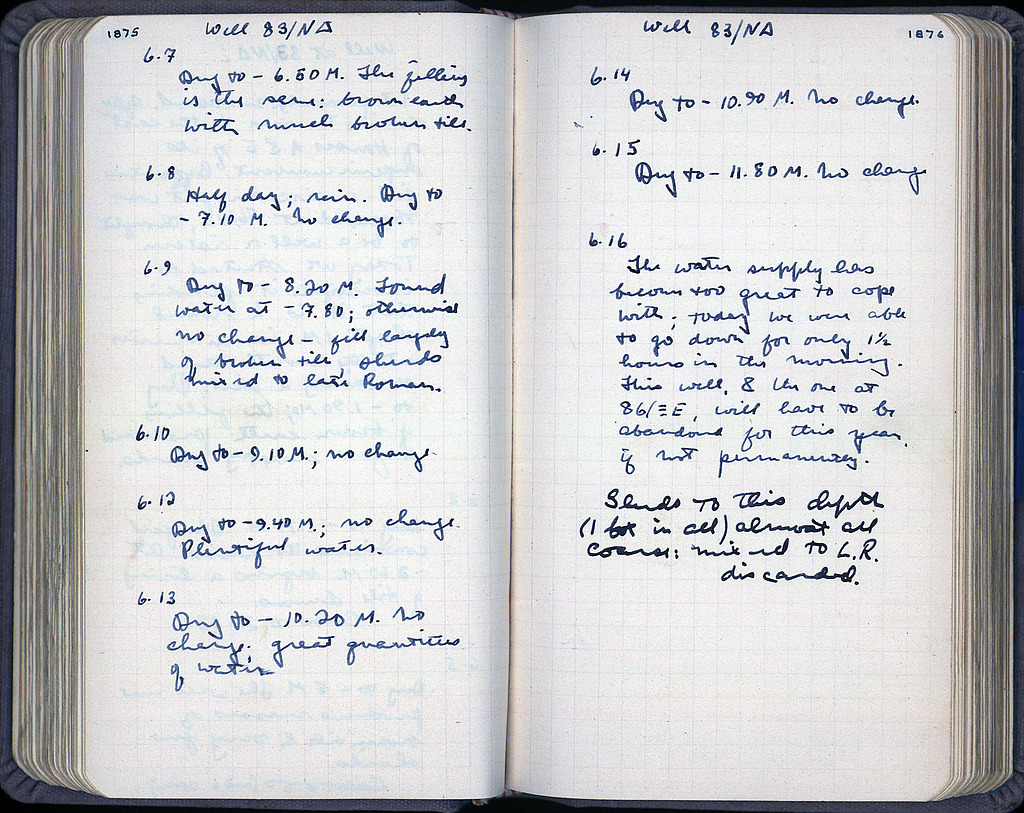 1875
Well 83/ΝΔ
6.7
Dug to - 6.50 M. The filling
is the same: brown earth
with much broken tile.
6.8
Half day; rain. Dug to
- 7.10 M. No change.
6.9
Dug to - 8.20 M. Found
water at - 7.80; otherwise
no change - fill largely
of broken tile, sherds
mixed to late Roman.
6.10
Dug to - 9.10 M.; no change.
6.12
Dug to - 9.40 M.; no change.
Plentiful water.
6.13
Dug to - 10.20 M. No
change; great quantities
of water
Well 83/ΝΔ
1876
6.14
Dug to - 10.90 M. No change.
6.15
Dug to - 11.80 M. No change
6.16
The water supply has
become too great to cope
with; today we were able
to go down for only 1½
hours in the morning.
This well, & the one at
86/ΞΕ, will have to be
abandoned for this year,
if not permanently.
Sherds to this depth
(1 in all) almost all
coarse: mixed to L.R.
discarded.